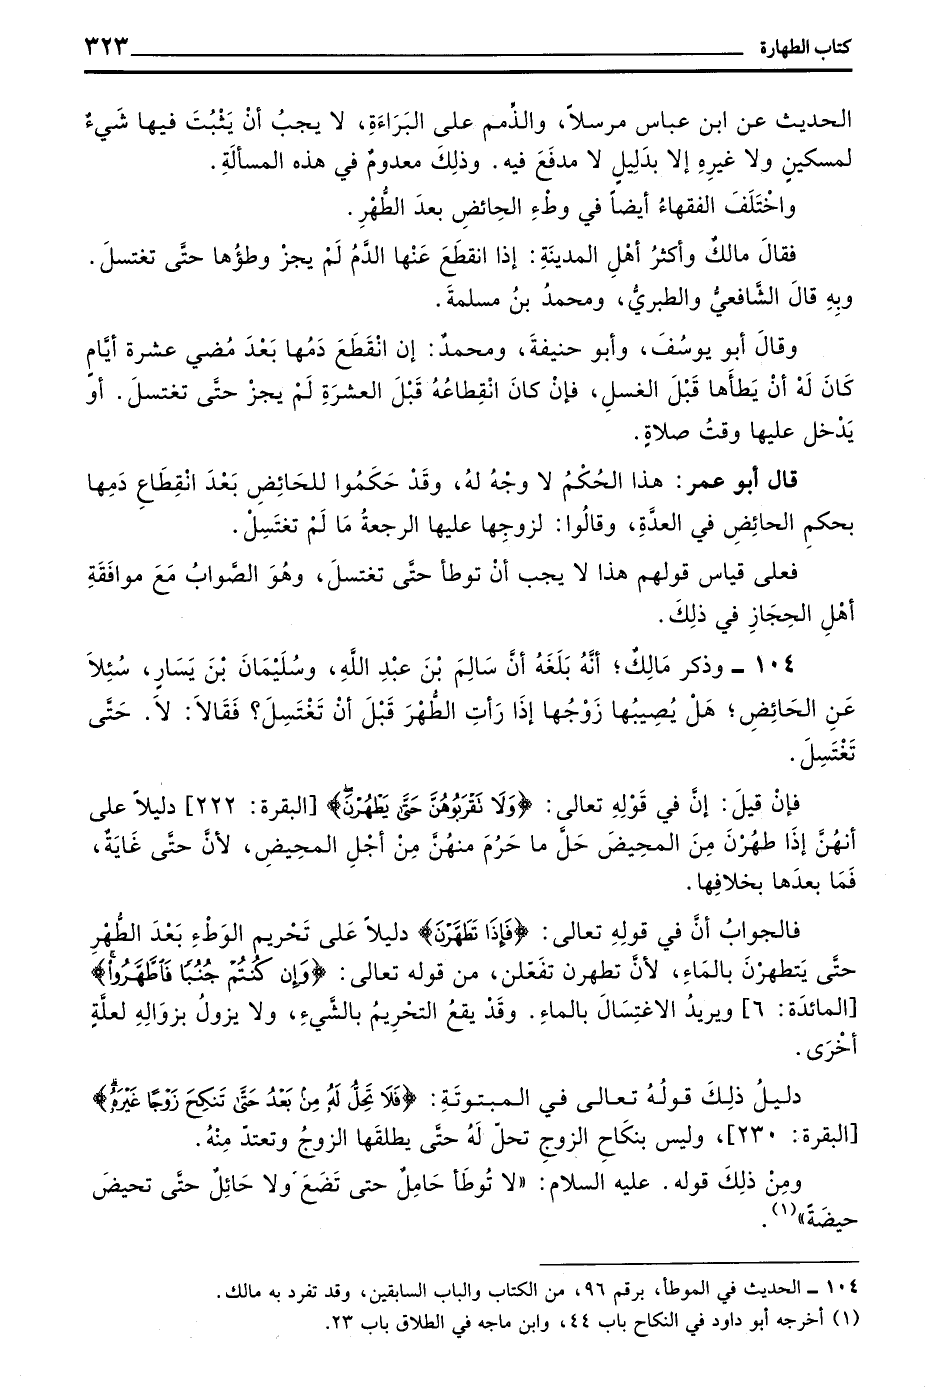 كتاب الطهارة ٣٢٣
الحديث عن ابن عباس مرسلاً، والذِّمم على البَرَاءَةِ، لا يجبُ أنْ يَثْبُتَ فيها شَيءٌ
لمسكينٍ ولا غيرِهِ إلا بدَلِيلٍ لا مدفَعَ فيه. وذلِكَ معدومٌ في هذه المسألَةِ.
واخْتَلَفَ الفقهاءُ أيضاً في وطْءِ الحائضِ بعدَ الطُّهْرِ.
فقالَ مالكٌ وأكثرُ أهْلِ المدينَةِ: إذا انقطَعَ عَنْها الدَّمُ لَمْ يجزْ وطؤُها حتَّى تغتسلَ.
وبِهِ قالَ الشَّافعيُّ والطبريُّ، ومحمدُ بنُ مسلمةَ.
وقالَ أبو يوسُفَ، وأبو حنيفةَ، ومحمدٌ: إن انْقَطَعَ دَمُها بَعْدَ مُضي عشرة أيَّامٍ
كَانَ لَهُ أنْ يَطأَها قَبْلَ الغسلِ، فإنْ كانَ انْقِطاعُهُ قَبْلَ العشرَةِ لَمْ يجزْ حتَّى تغتسلَ. أو
يَدْخل عليها وقتُ صلاةٍ.
قال أبو عمر: هذا الحُكْمُ لا وجْهُ لهُ، وقَدْ حَكَمُوا للحَائِضِ بَعْدَ انْقِطَاعِ دَمِها
بحكمِ الحائِضِ في العدَّةِ، وقالُوا: لزوجِها عليها الرجعةُ مَا لَمْ تغتَسِلْ.
فعلى قياس قولهم هذا لا يجب أنْ توطأ حتَّى تغتسلَ، وهُوَ الصَّوابُ مَعَ موافَقَةِ
أهْلِ الحِجَازِ في ذلِكَ.
١٠٤ ـ وذكر مَالِكٌ؛ أنَّهُ بَلَغَهُ أنَّ سَالِمَ بْنَ عبْدِ اللَّهِ، وسُلَيْمَانَ بْنَ يَسَارٍ، سُئِلاَ
عَنِ الحَائِضِ؛ هَلْ يُصِيبُها زَوْجُها إذَا رَأتِ الطُّهْرَ قَبْلَ أنْ تَغْتَسِلَ؟ فَقَالاَ: لاَ. حَتَّى
تَغْتَسِلَ.
فإنْ قيلَ: إنَّ في قَوْلِهِ تعالى: ﴿وَلَا نَقْرَبُوهُنَّ حَتَّى يَطْهُرْنَۖ﴾ [البقرة: ٢٢٢] دليلاً على
أنهُنَّ إذَا طهُرْنَ مِنَ المحيضَ حَلَّ ما حَرُمَ منهُنَّ مِنْ أجْلِ المحيضِ، لأنَّ حتَّى غَايَةٌ،
فَمَا بعدَها بخلافِها.
فالجوابُ أنَّ في قولِهِ تعالى: ﴿فَإِذَا تَطَهَّرْنَ﴾ دليلاً عَلى تَحْريمِ الوَطْءِ بَعْدَ الطُّهْرِ
حتَّى يَتطهرْنَ بالمَاءِ، لأنَّ تطهرن تفَعْلن، من قوله تعالى: ﴿وَإِن كُنتُمْ جُنُبًا فَاطَّهَّرُواْۚ﴾
[المائدَة: ٦] ويريدُ الاغتِسَالَ بالماءِ. وقَدْ يقعُ التحْرِيمُ بالشَّيءِ، ولا يزولُ بزوَالِهِ لعلَّةٍ
أخْرَى.
دليلُ ذلِكَ قولُهُ تعالى في المبتوتَةِ: ﴿فَلَا تَحِلُّ لَهُ مِنْ بَعْدُ حَتَّى تَنكِحَ زَوْجًا غَيْرَهُۗ﴾
[البقرة: ٢٣٠]، وليس بنكَاحِ الزوجِ تحلّ لَهُ حتَّى يطلقَها الزوجُ وتعتدّ مِنْهُ.
ومِنْ ذلِكَ قوله. عليه السلام: «لا تُوطَأ حَامِلٌ حتى تَضَعَ وَلا حَائِلٌ حتَّى تحيضَ
حيضَةً»(١).
١٠٤ ـ الحديث في الموطأ، برقم ٩٦، من الكتاب والباب السابقين، وقد تفرد به مالك.
(١) أخرجه أبو داود في النكاح باب ٤٤، وابن ماجه في الطلاق باب ٢٣.